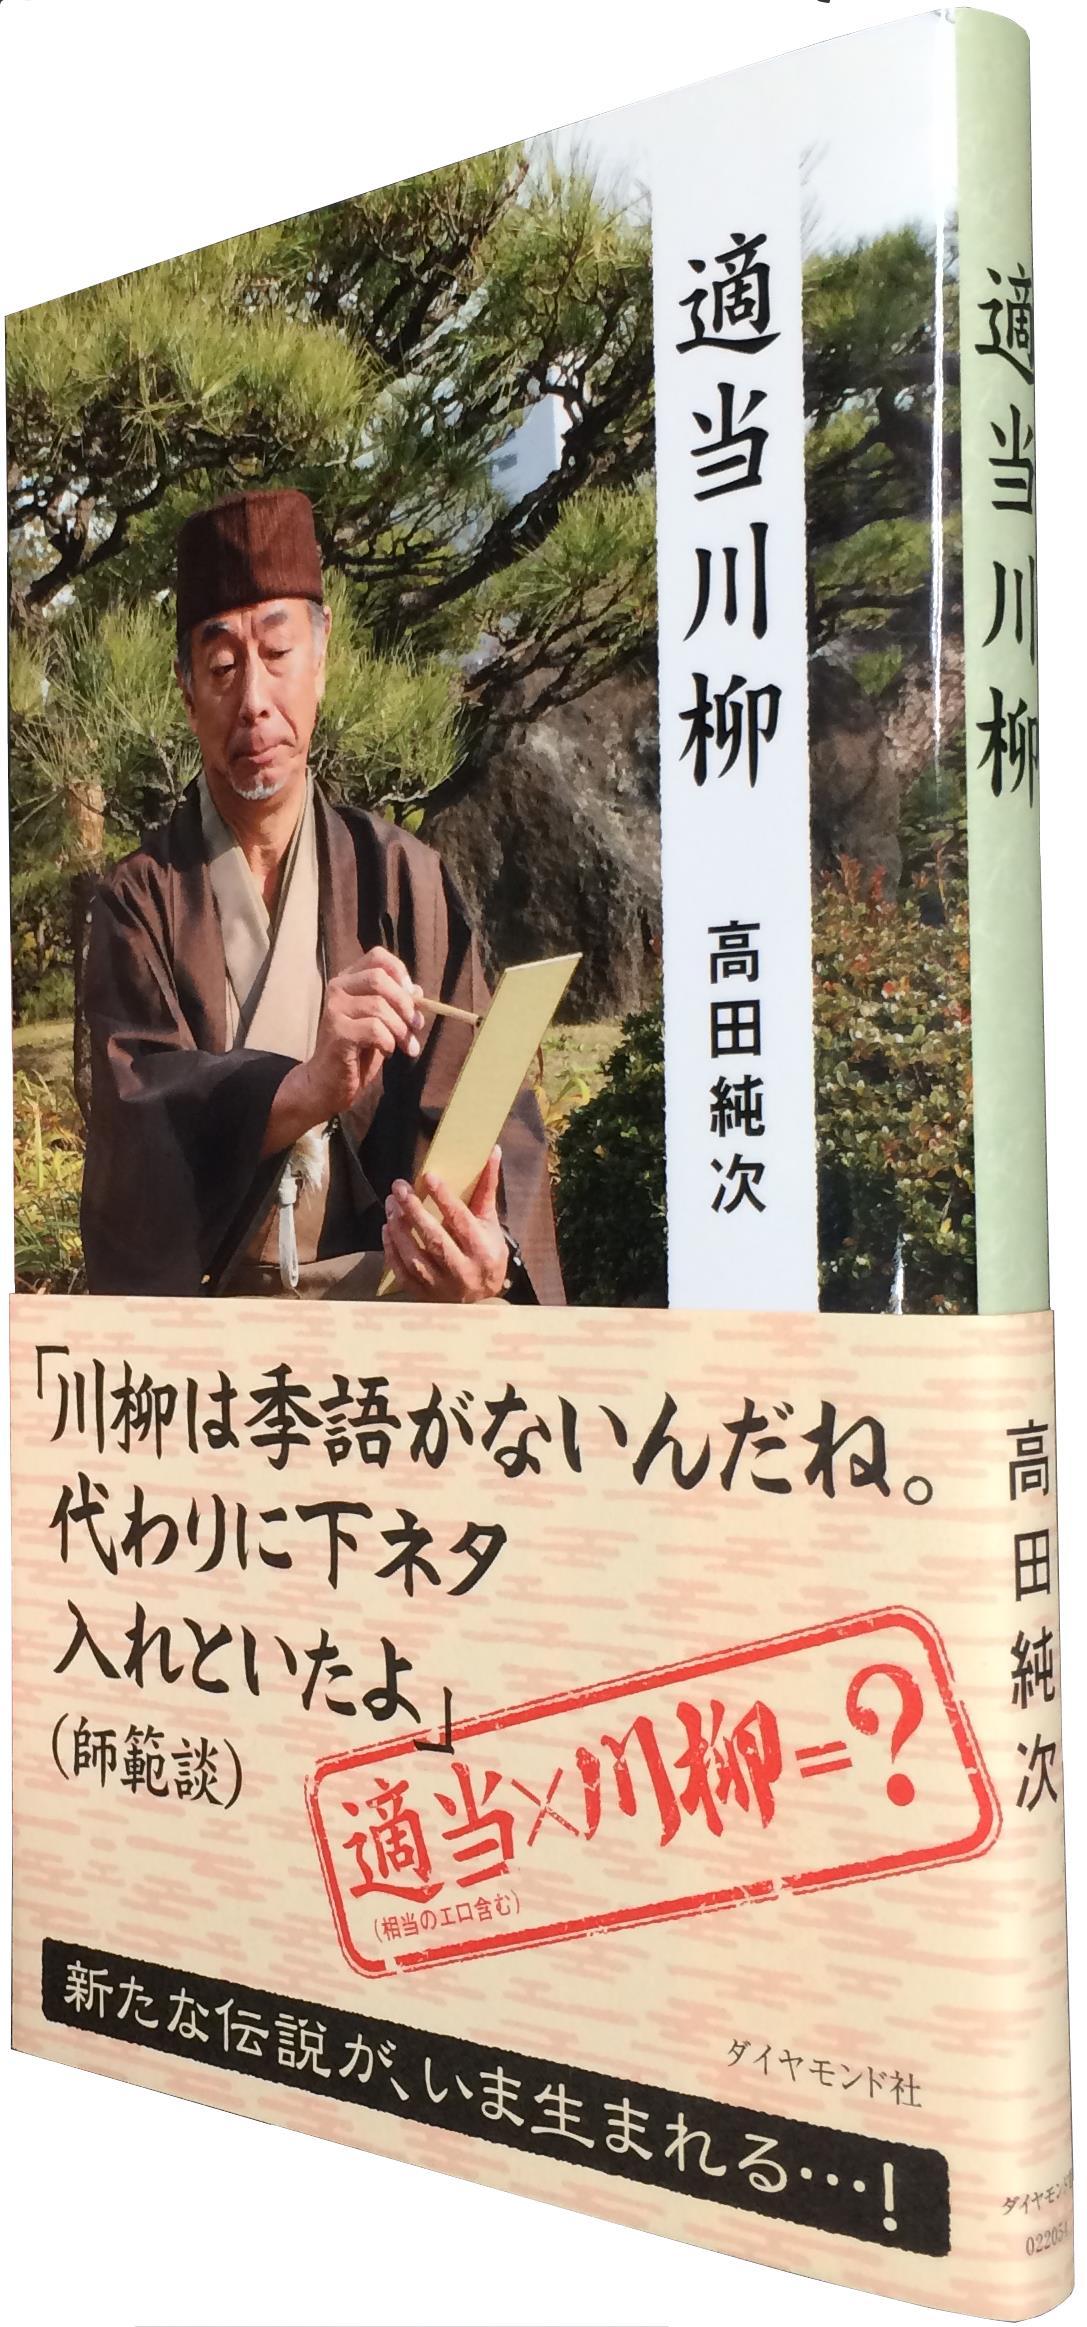 適当川柳
高田純次
適当川柳
高田純次
「川柳は季語がないんだね。
代わりに下ネタ
入れといたよ」
(師範談)
適当×川柳=?
(相当のエロ含む)
新たな伝説が、いま生まれる…!
ダイヤモンド社
ダイヤモンド
022054